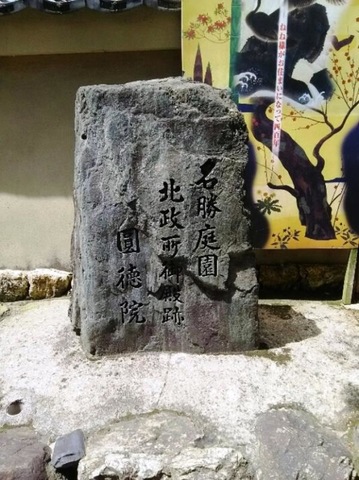 名勝庭園
北政所御殿跡
圓徳院
ねね様がお住まいになって四百年